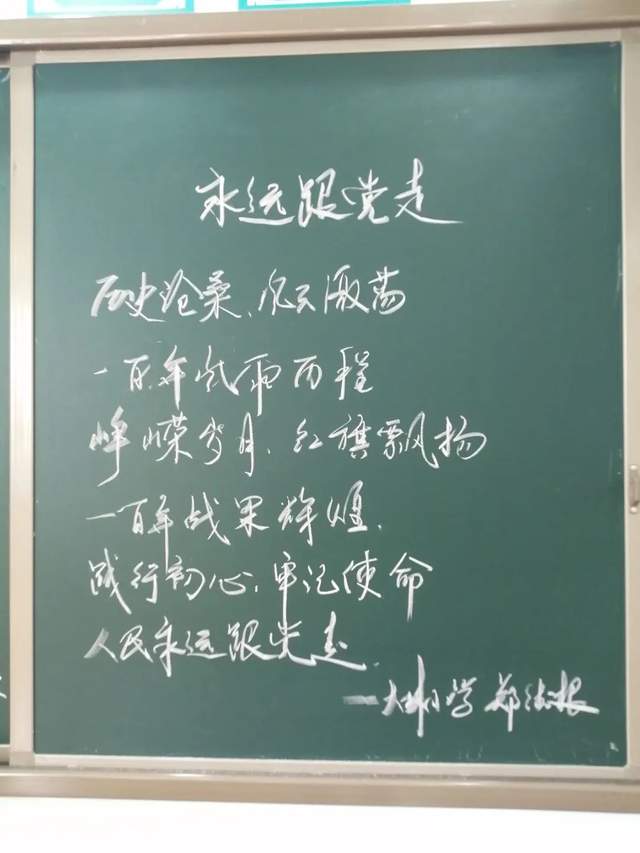 永远跟党走
历史沧桑、风云激荡
一百年风雨历程
峥嵘岁月、红旗飘扬
一百年战果辉煌.
践行初心、牢记使命
人民永远跟党走.
小学 郑